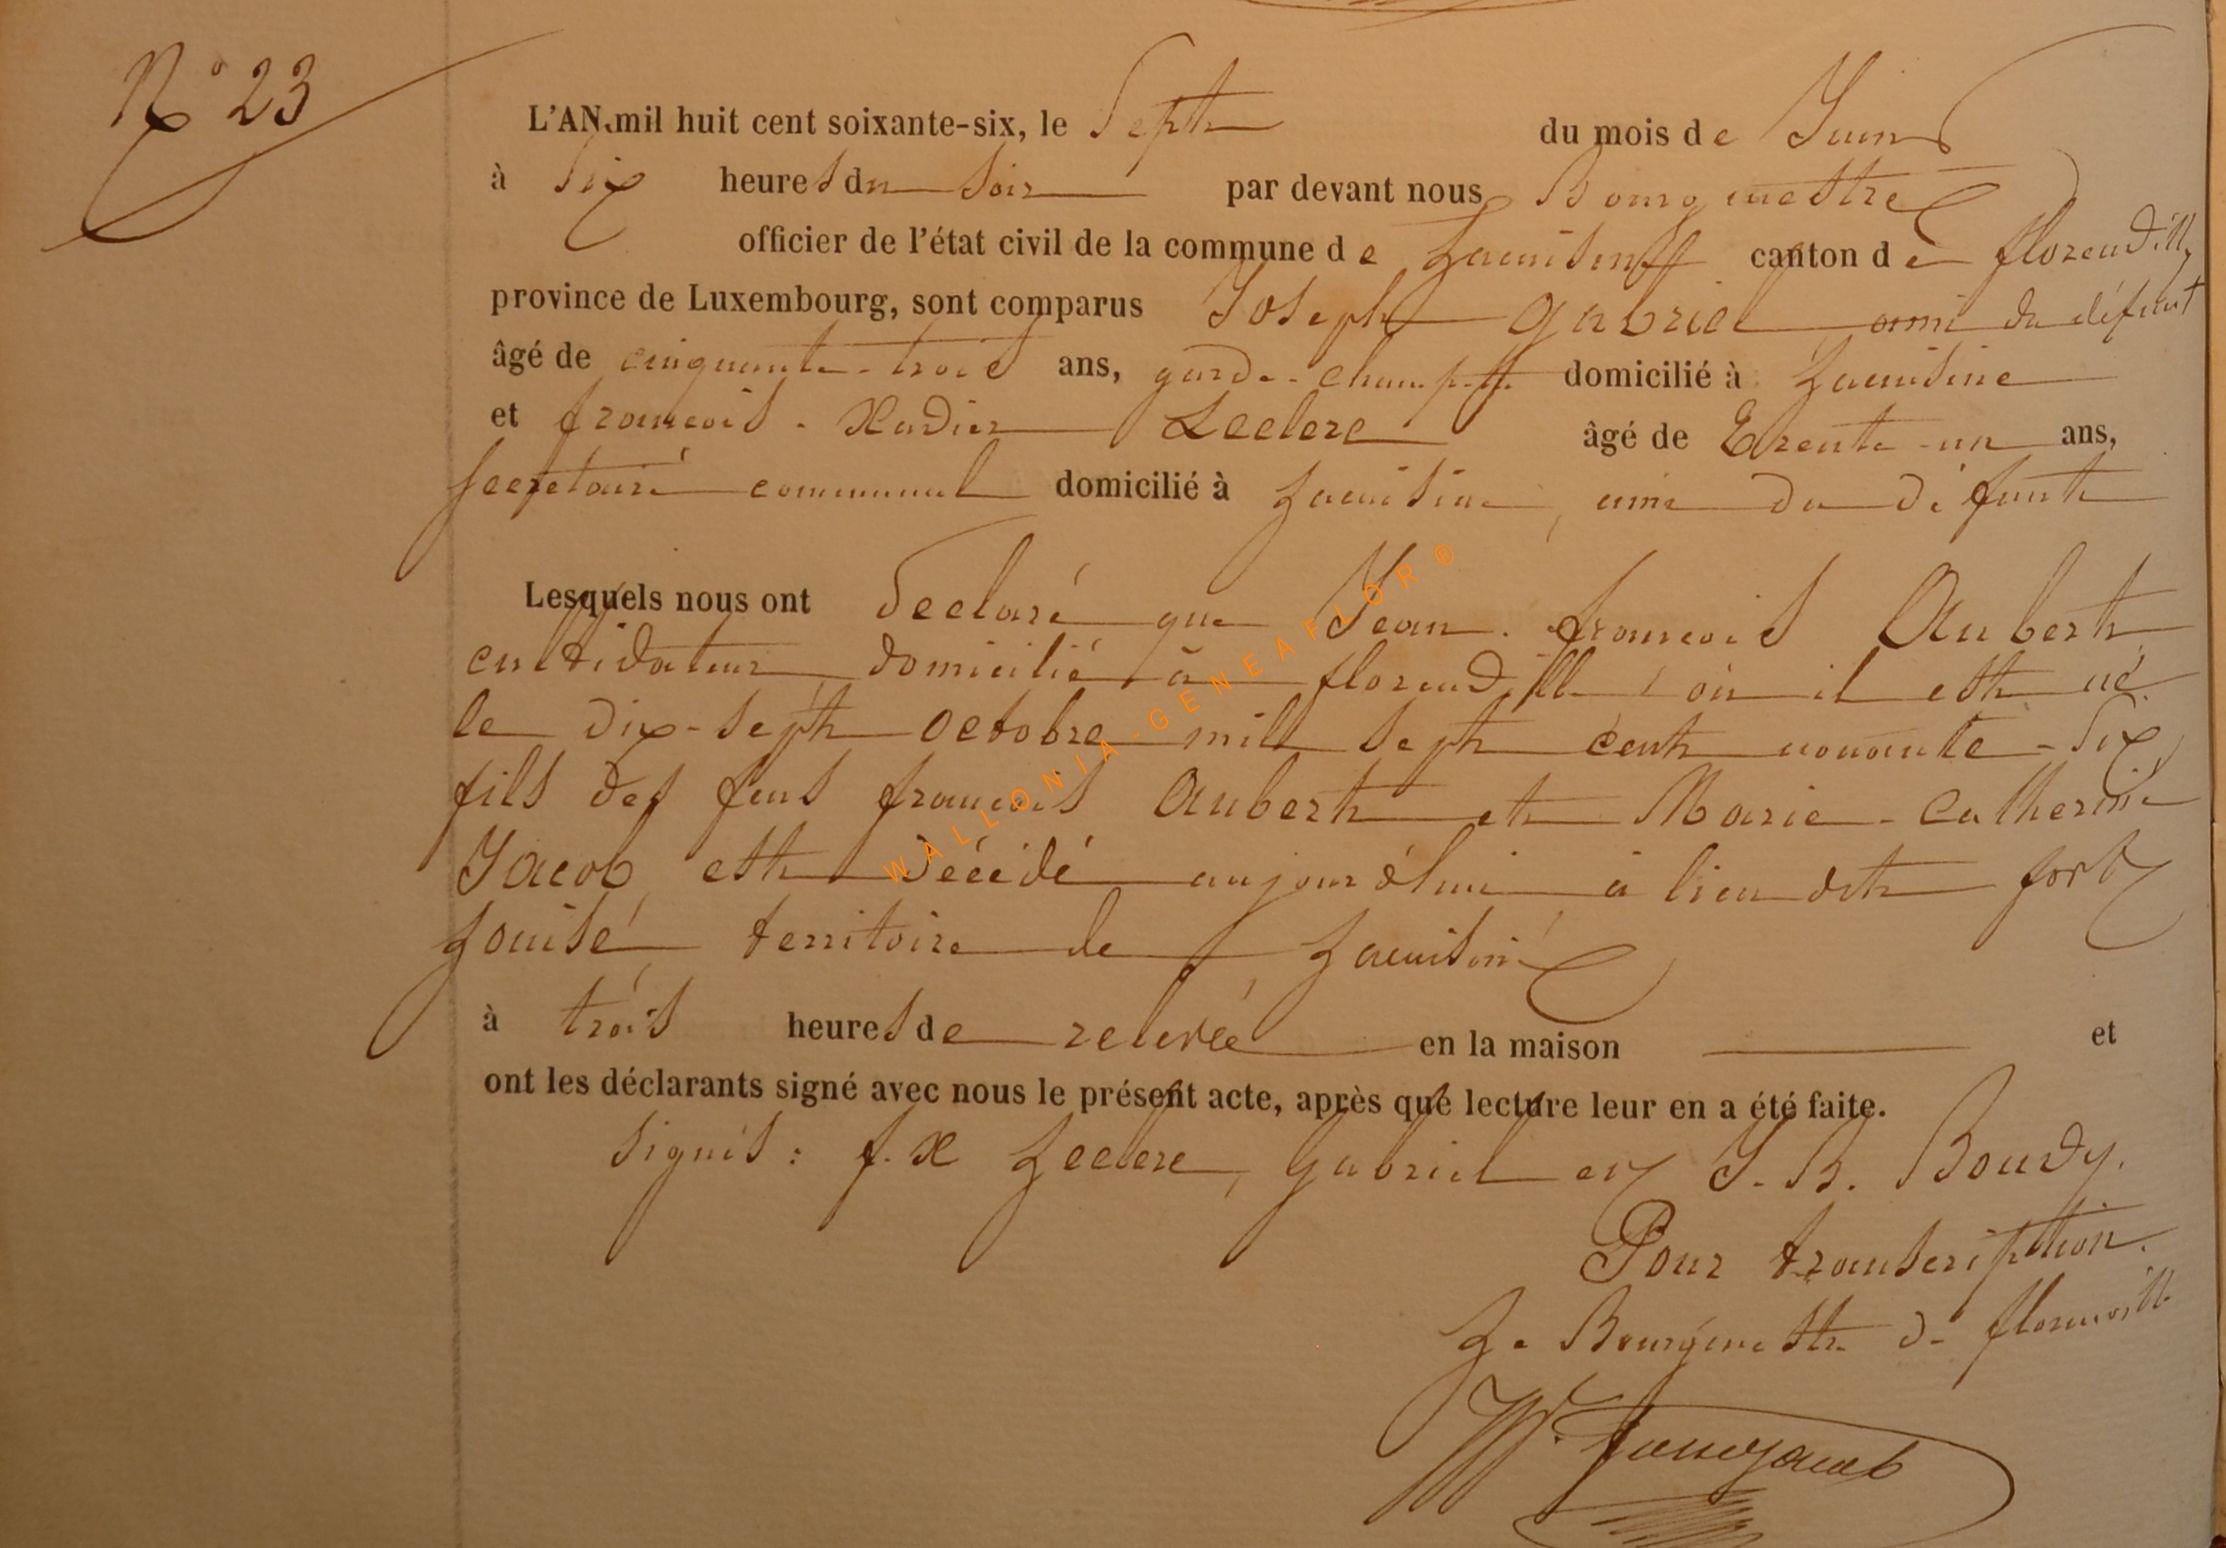 N° 23
L'AN mil huit cent soixante-six, le Sept du mois de Juin
à Six heures du soir par devant nous Bourgmestre
officier de l'état civil de la commune de Lacuisine canton de florenville
province de Luxembourg, sont comparus Joseph Gabriel ami du défunt
âgé de cinquante-trois ans, garde-champêtre domicilié à Lacuisine
et françois-Xavier Leclerc âgé de Trente-un ans,
secrétaire communal domicilié à Lacuisine, ami du défunt
Lesquels nous ont déclaré que Jean-françois Aubert
cultivateur domicilié à florenville, où il est né
le dix-sept octobre mil sept cent nonante-six,
fils des feus françois Aubert et Marie-Catherine
Jacob, est décédé aujourd'hui à lieu dit
territoire de Lacuisine
à trois heures de relevée en la maison et
ont les déclarants signé avec nous le présent acte, après que lecture leur en a été faite.
Signés : f. X Leclerc, Gabriel et J. B. Boudy.
Pour transcription.
Le Bourgmestre de florenville
WALLONIA-GENEAFLOR®